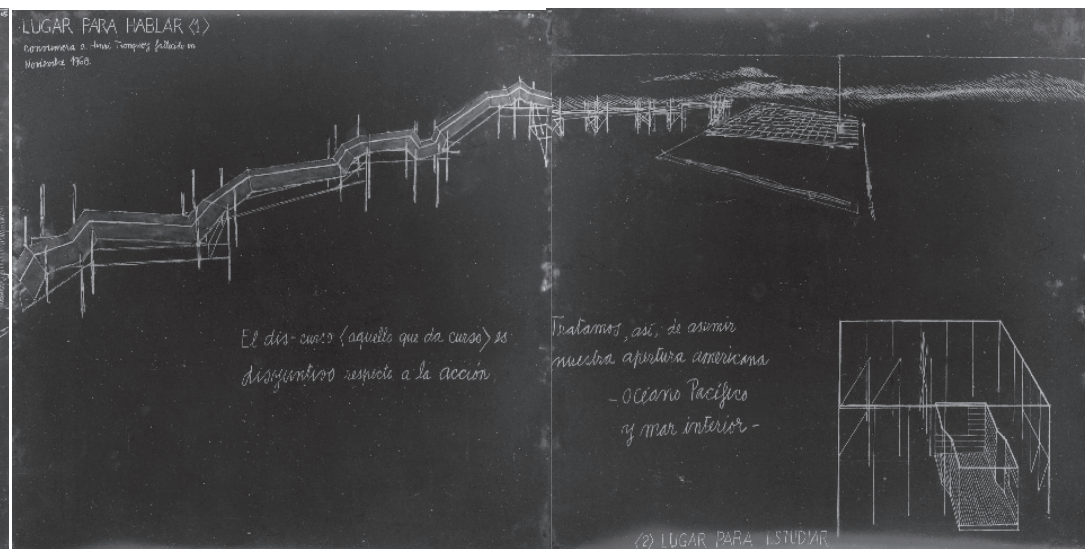 LUGAR PARA HABLAR (1)
Conmemora a Henri Tronquoy fallecido en
Noviembre 1968.
El dis-curso (aquello que da curso) es
disyuntivo respecto a la acción
Tratamos, así, de asumir
nuestra apertura americana
-Océano Pacífico
y mar interior-
(2) LUGAR PARA ESTUDIAR